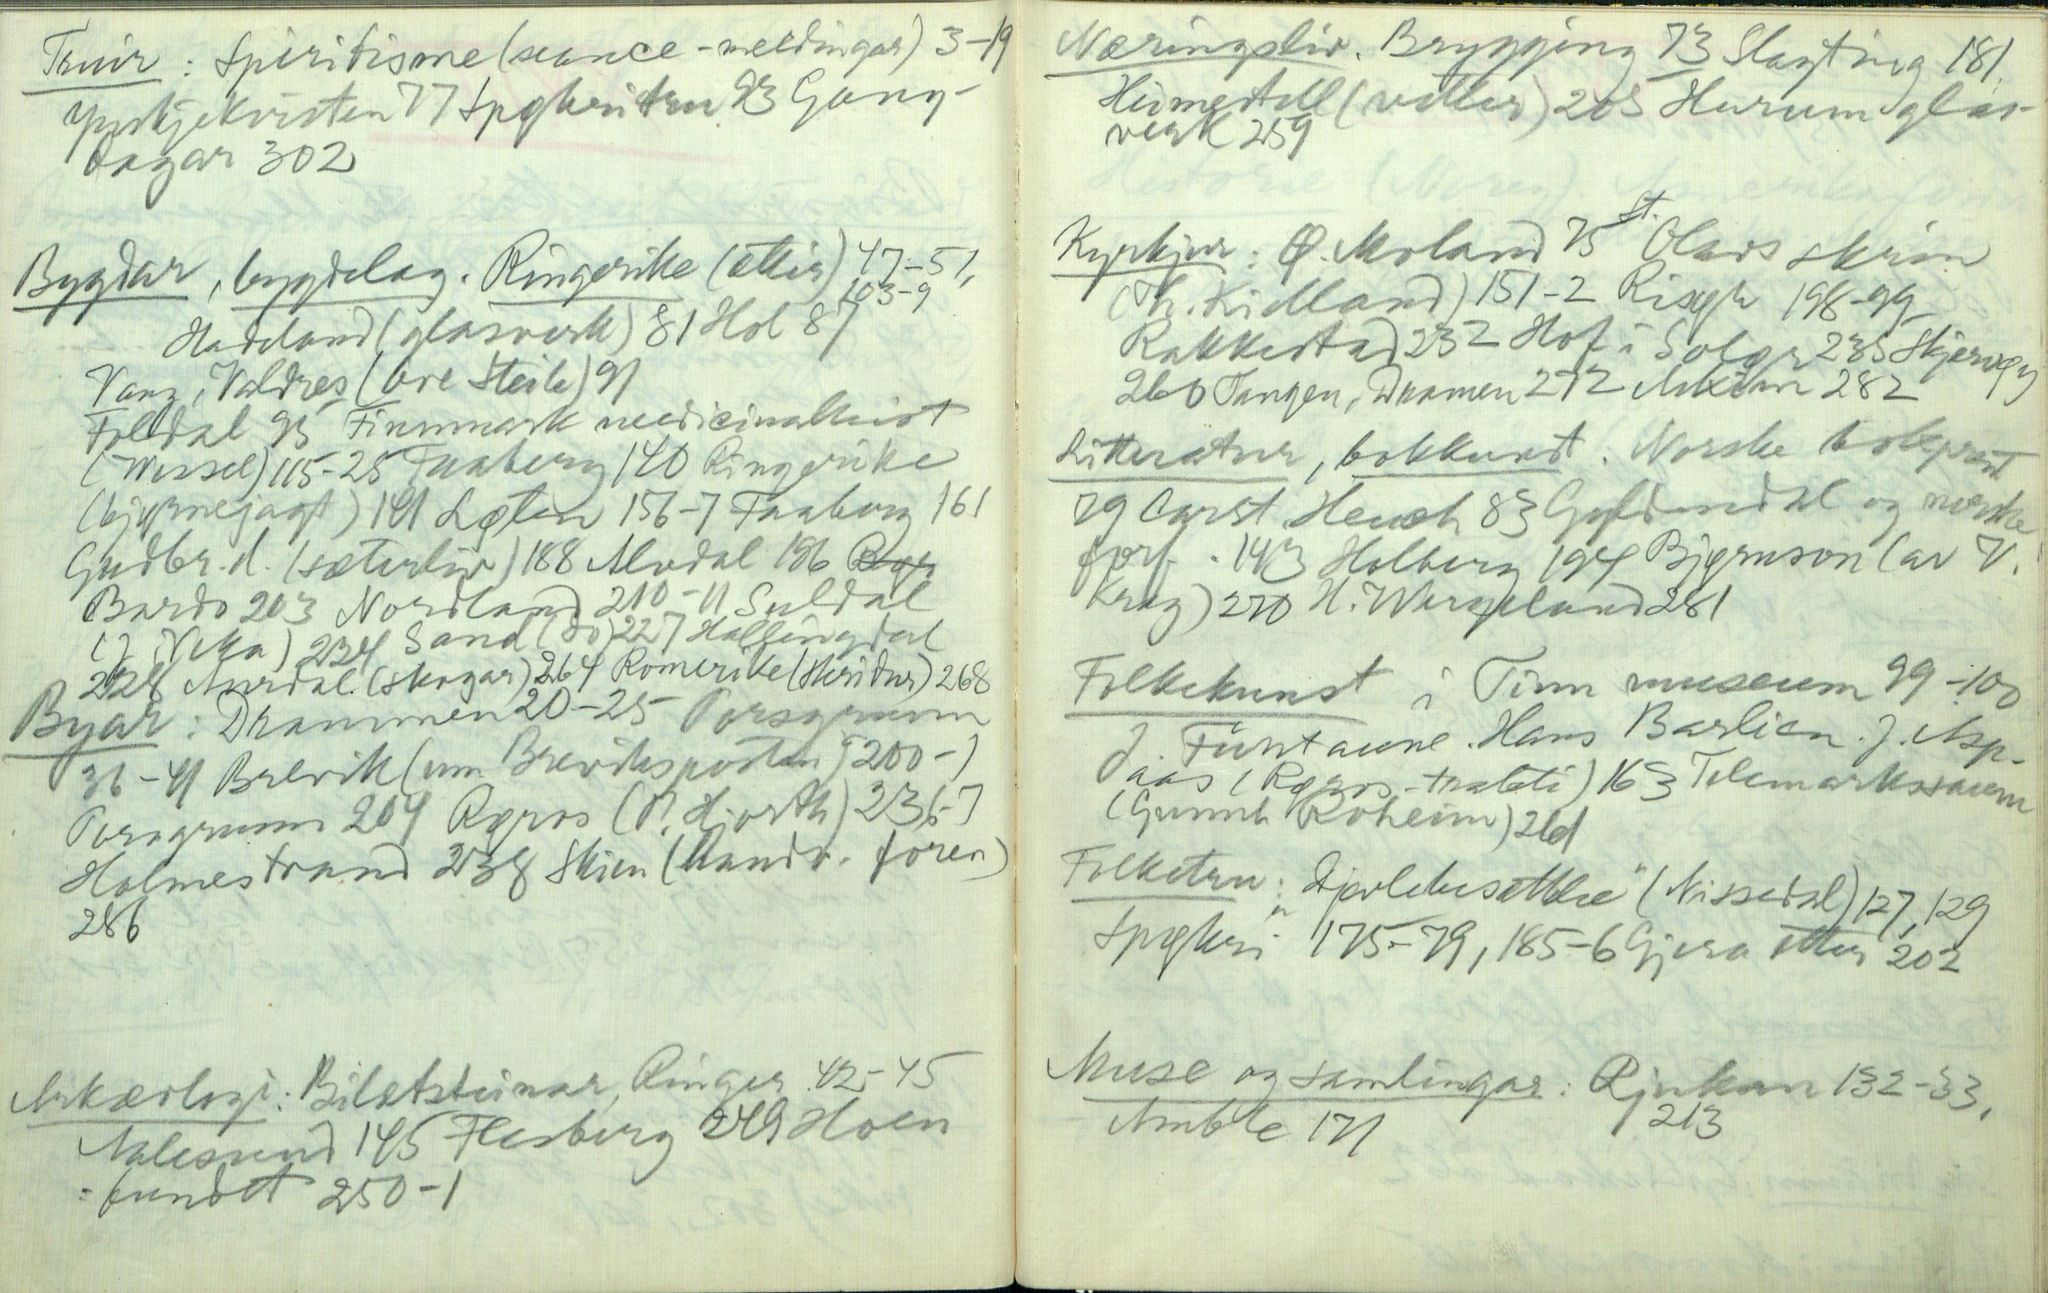 Truir: Spiritisme (seance-meldingar) 3-19
Ynskjekvisten 77 Spøkeritru 93 Gang-
dagar 302
Bygdar, bygdelag. Ringerike (ætter) 47-51,
103-9
Hadeland (glasverk) 81 Hol 87
Vang, Valdres (Ivre Steile) 91
Folldal 93 Finnmark medicinalhist
(Wessel) 115-25 Faaberg 140 Ringerike
(bjørnejagt) 141 Løten 156-7 Faaberg 161
Gudbr.d. (sæterliv) 188 Alvdal 196
Bardo 203 Nordland 210-11 Suldal
(J. Veka) 224 Sand (do) 227 Hallingdal
228 Aurdal (skogar) 264 Romerike (Skridur) 268
Byar: Drammen 20-25 Porsgrunn
36-41 Brevik (um Breviksposten) 200-1
Porsgrunn 209 Røros (P. Hjorth) 236-7
Holmestrand 238 Skien (Handv. foren)
286
Arkæologi: Biletsteinar, Ringer. 42-45
Aalesund 145 Flesberg 249 Hoen
-fundet 250-1
Næringsliv. Brygging 73 Slagting 181.
Heimestell (vetter) 205 Hurum glas-
verk 259
Kyrkjur: Ø. Moland 75 St. Olavs skrin
(Th. Kielland) 151-2 Risør 198-99
Rakkestad 232 Hof i Solør 235 Skjervøy
260 Tangen, Dramen 272 282
Litteratur, bokkunst. Norske bokprent
79 Carst. Hauch 83 Gyldendal og norske
forf. 143 Holberg 194 Bjørnson (av V.
Krag) 270 H. Wergeland 281
Folkekunst i Tinn museum 99-100
J. Fürstaune. Hans Barlien. J. Asp-
aas (Røros-trakti) 163 Telemarkssaum
(Gunnh Roheim) 261
Folketru: "Djevlebesettelse" (Nissedal) 127, 129
Spøkeri 175-79, 185-6 Gjera etter 202
Muse og samlingar: Rjukan 132-33,
213
Amble 171